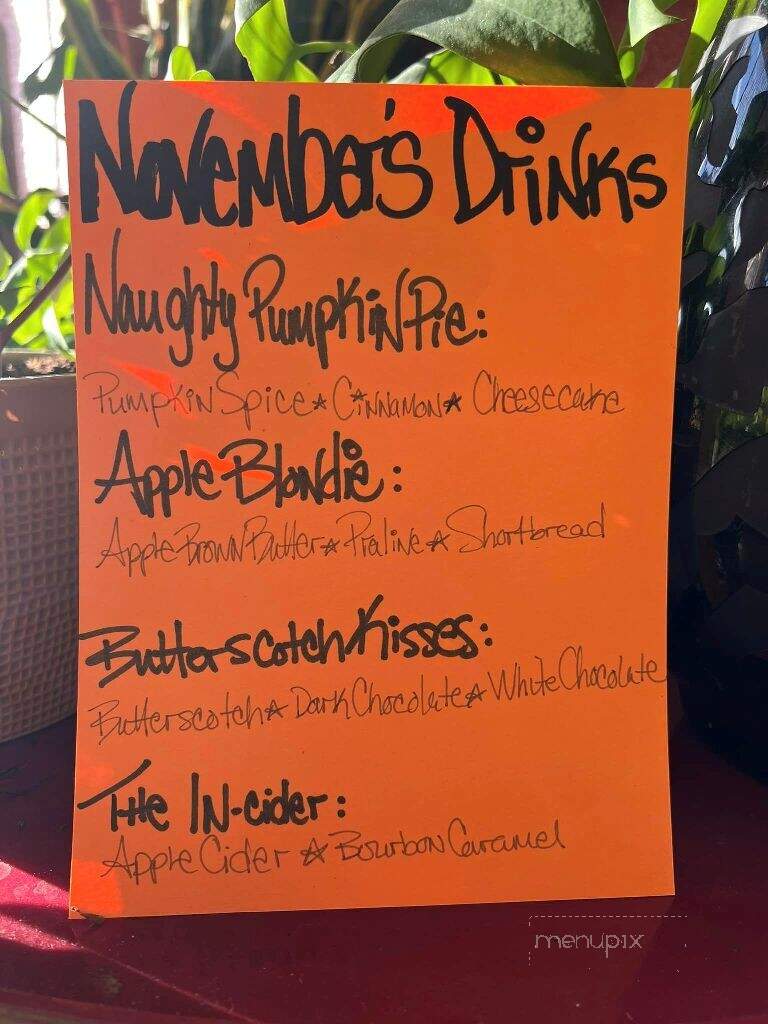 November's Drinks
Naughty Pumpkin Pie:
Pumpkin Spice☆Cinnamon☆Cheesecake
Apple Blondie:
Apple Brown Butter☆Praline☆Shortbread
Butterscotch Kisses:
Butterscotch☆Dark Chocolate☆White Chocolate
The In-cider:
Apple Cider ☆Bourbon Caramel
menupix